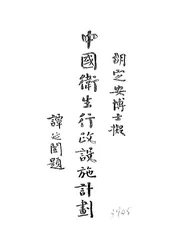 胡定安博士擬
中國衛生行政設施計劃
譚延闓題
3905